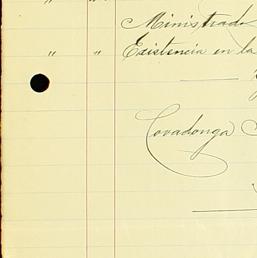 " "
Ministrado
" " Existencia en la
Covadonga